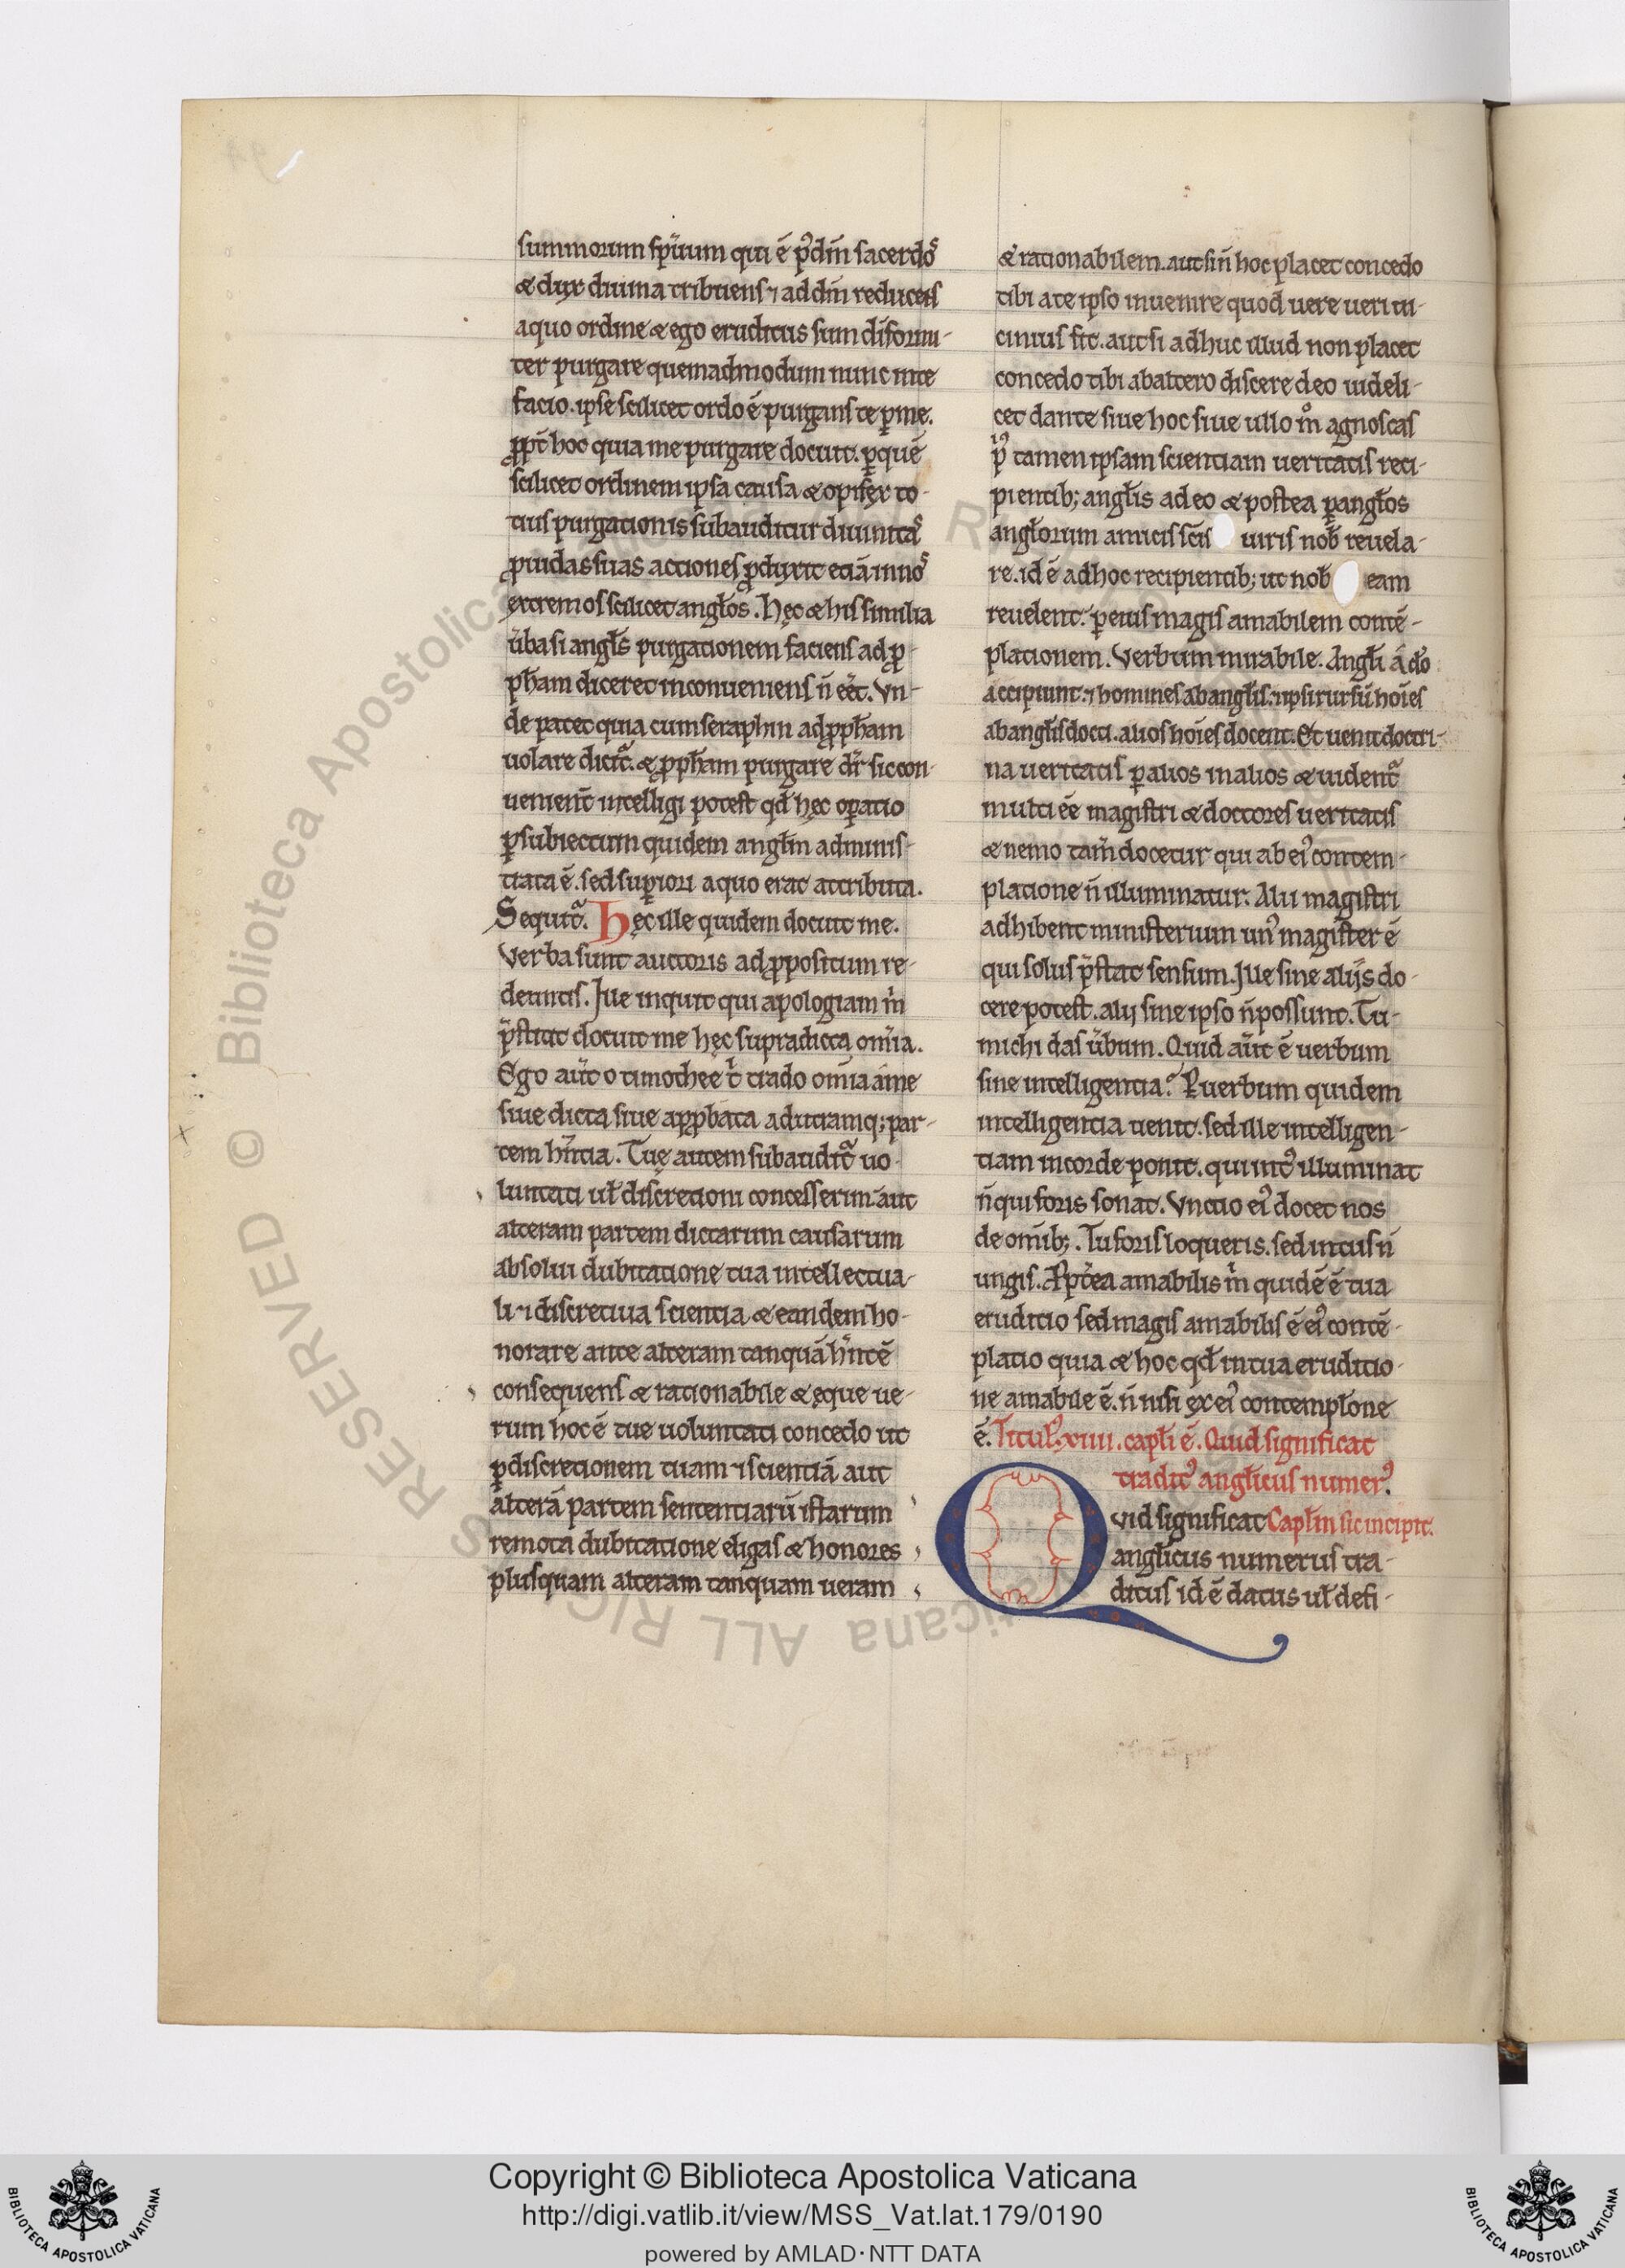 summorum sp̄ituum qui ē p᷒ dm̄ sacerdoſ
& dux diuina tribuens ⁊ ad dm̄ reducens
a quo ordine & ego eruditus sum difformi-
ter purgare quemadmodum nunc in te
facio. ipse scilicet ordo ē purgans te ꝑ me.
ꝓpt̄ hoc quia me purgare docuit. ꝑ quē
scilicet ordinem ipsa causa & opifex to-
tius purgationis subauditur diuinitas
ꝓuidas suas actiones ꝓduxit etiā in nos
extremos scilicet angl̄os. Hęc & his similia
ūba si angl̄s purgationem faciens ad ꝓ-
ph̄am diceret inconueniens n̄ eēt. Vn-
de patet quia cum seraphin ad ꝓph̄am
uolare dicit᷑. & ꝓph̄am purgare dr̄ sic con-
uenient̄ intelligi potest qd̄ hęc oꝑatio
ꝑ subiectum quidem angl̄m adminis-
trata ē. sed suꝑiori a quo erat attributa.
Sequit᷑. Hęc ille quidem docuit me.
Verba sunt auctoris ad ꝓpositum re-
deuntis. Ille inquit qui apologiam m̄
p̄stitit docuit me hęc supradicta om̄ia.
Ego aūt o timothee t̄ trado om̄ia a me
siue dicta siue apꝓbata ad utramq; par-
tem h̄ntia. Tuę autem subaudit᷑ uo-
luntati ul̄ discretioni concesserim aut
alteram partem dictarum causarum
absolui dubitatione tua intellectua-
li ⁊ discretiua scientia & eandem ho-
norare ante alteram tanquā h̄ntē
consequens & rationabile & ęque ue-
rum hoc ē tue uoluntati concedo ut
ꝑ discretionem tuam ⁊ scientiā aut
alterā partem sententiarū istarum
remota dubitatione eligas & honores
plusquam alteram tanquam ueram
& rationabilem. aut si n̄ hoc placet concedo
tibi a te ipso inuenire quod uere ueri ui-
cinius sit. aut si adhuc illud non placet
concedo tibi ab altero discere deo uideli-
cet dante siue hoc siue ullo m̊ agnoscas
tamen ipsam scientiam ueritatis reci-
pientib; angl̄is a deo & postea ꝑ angl̄os
angl̄orum amicis scīs uiris nob̄ reuela-
re. id ē ad hoc recipientib; ut nob̄ eam
reuelent. ꝑ eius magis amabilem contē-
plationem. Verbum mirabile. Angl̄i a do
accipiunt. ⁊ homines ab angl̄is. ⁊ ipsi rursū hoīes
ab angl̄is docti. alios hoīes docent. Et uenit doctri-
na ueritatis ꝑ alios in alios & uident᷑
multi eē magistri & doctores ueritatis
& nemo tam̄ docetur qui ab ei᷒ contem-
platione n̄ illuminatur. Alii magistri
adhibent ministerium un᷒ magister ē
qui solus p̄stat sensum. Ille sine alijs do-
cere potest. alij sine ipso n̄ possunt. Tu
michi das ūbum. Quid aūt ē uerbum
sine intelligentia? Per uerbum quidem
intelligentia uenit. sed ille intelligen-
tiam in corde ponit. qui int᷒ illuminat
n̄ qui foris sonat. Vnctio ei᷒ docet nos
de omīb;. Tu foris loqueris. sed intus n̄
ungis. Propt̄ea amabilis m̄ quidē ē tua
eruditio sed magis amabilis ē ei᷒ contē-
platio quia & hoc qd̄ in tua eruditio-
ne amabile ē. n̄ nisi ex ei᷒ contempl̄one
ē. Titul᷒ .xiiii. capl̄i ē. Quid significat
tradit᷒ angl̄icus numer᷒.
Quid significat Capl̄m sic incipit.
angl̄icus numerus tra-
ditus id ē datus ul̄ defi-
Copyright © Biblioteca Apostolica Vaticana
http://digi.vatlib.it/view/MSS_Vat.lat.179/0190
powered by AMLAD·NTT DATA
BIBLIOTECA APOSTOLICA VATICANA
BIBLIOTECA APOSTOLICA VATICANA